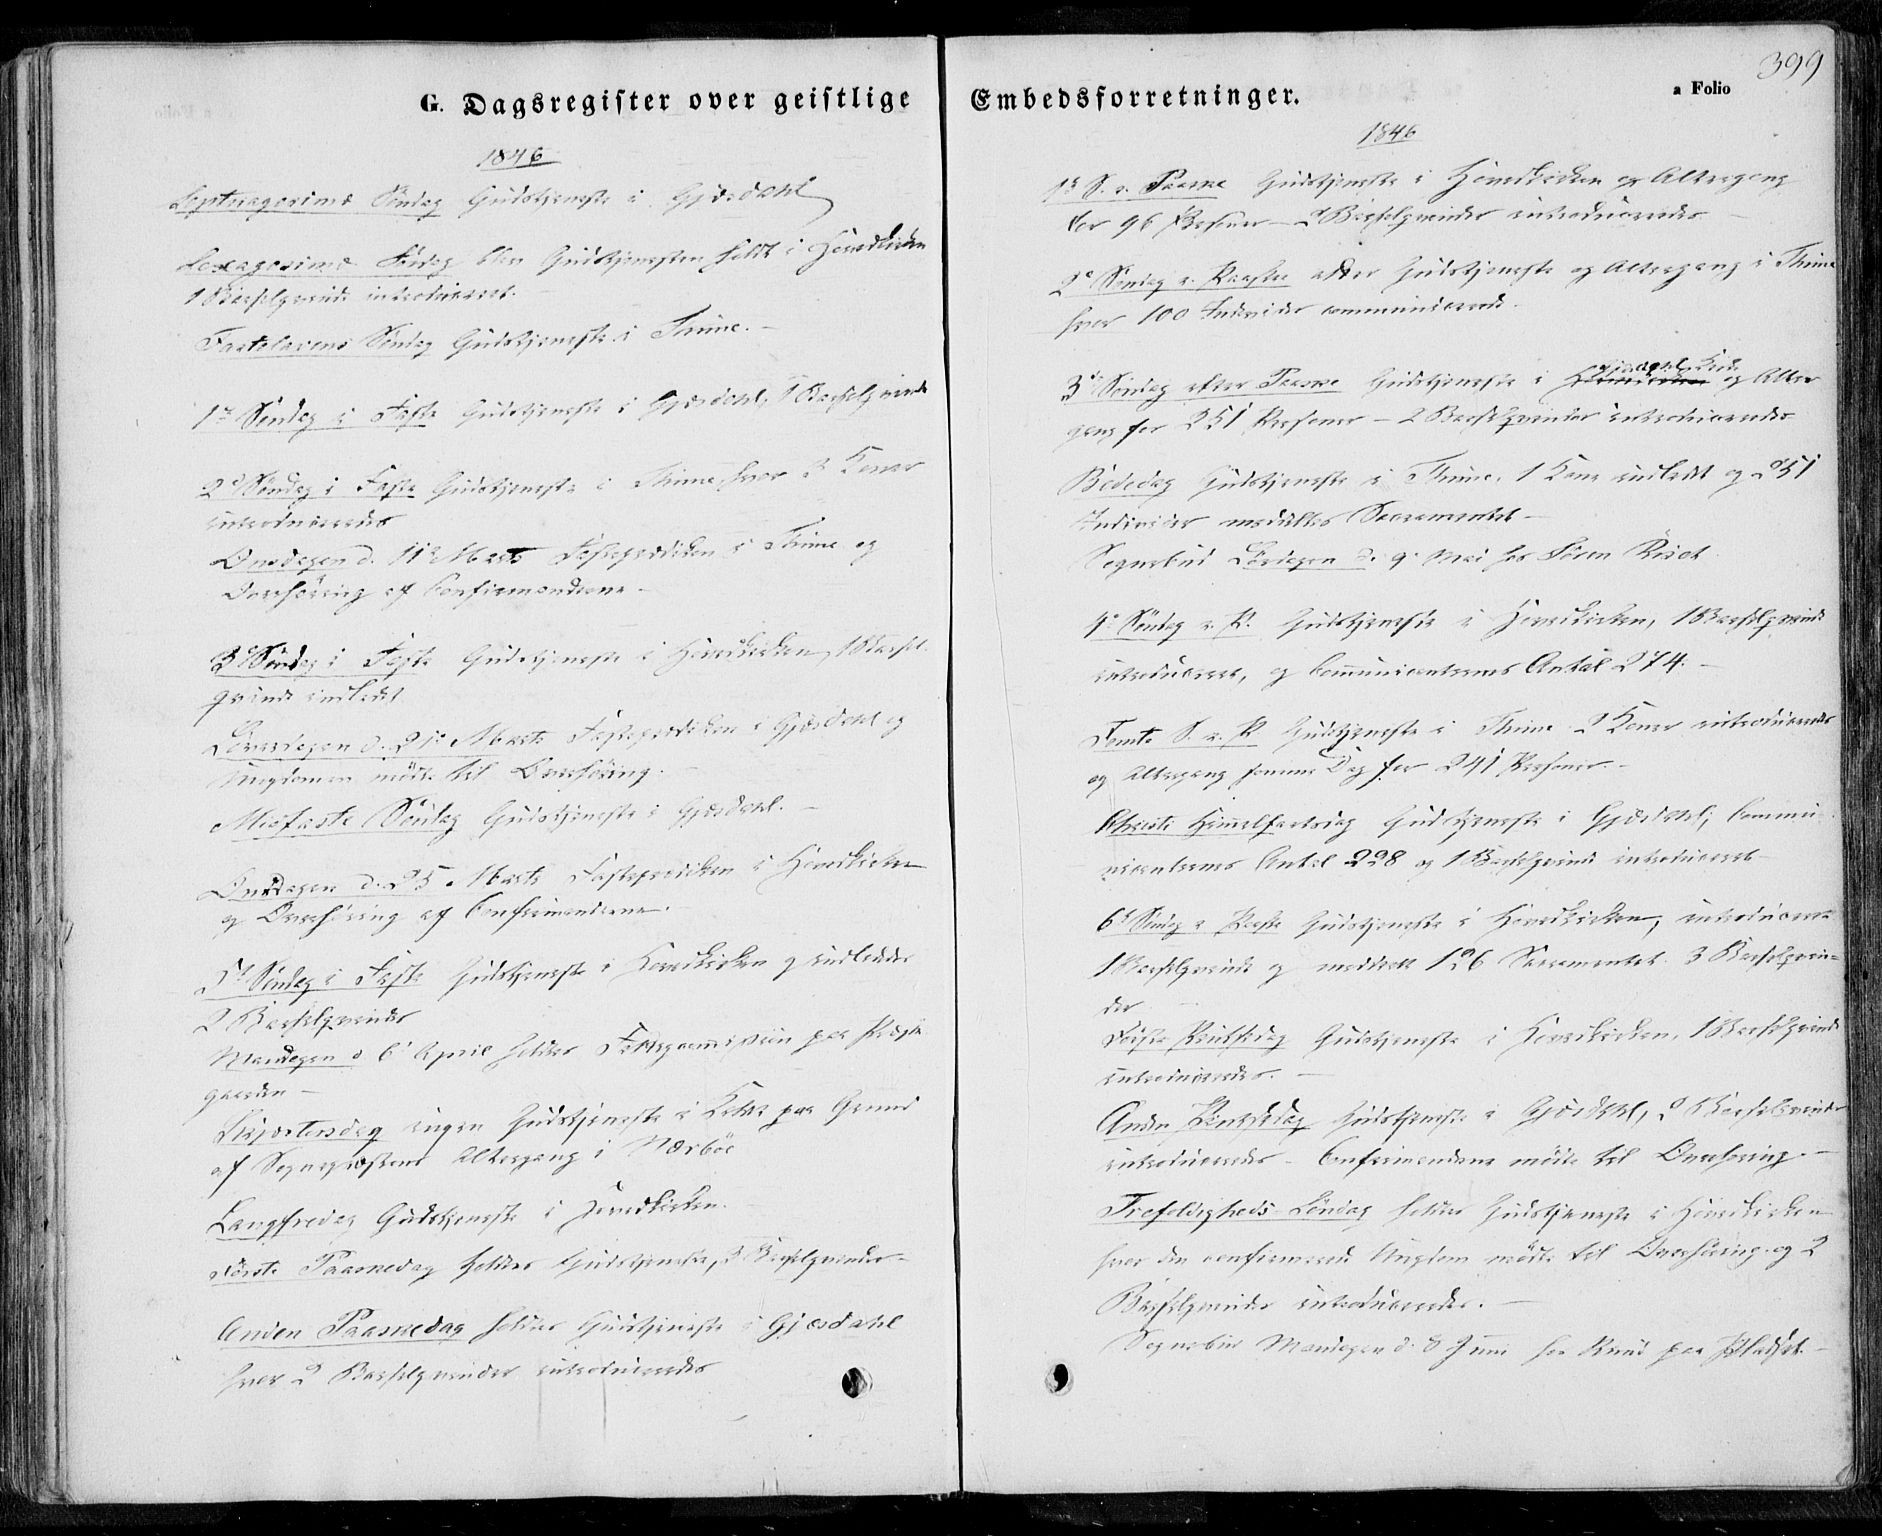 G. Dagsregister over geistlige
1846
Septuagesima Søndag Gudstjeneste i Gjæsdahl
Sexagesima Søndag blev Gudstjenesten holdt i Hovedkirken
1 Barselqvinde introduceret.
Fastelavens Søndag Gudstjeneste i Thime. –
1ste Søndag i Faste Gudstjeneste i Gjæsdahl, 1 Barselqvinde
2d Søndag i Faste Gudstjeneste i Thime hvor 3 Koner
introduceredes
Onsdagen d. 11te Marts Fasteprædiken i Thime og
Overhøring af Confirmanderne –
3d Søndag i Faste Gudstjeneste i Hovedkirken, 1 Barsel-
qvinde indledet
Løverdagen d. 21de Marts Fasteprædiken i Gjæsdahl og
Ungdommen mødte til Overhøring.
Midfaste Søndag Gudstjeneste i Gjæsdahl. –
Onsdagen d. 25 Marts Fasteprædiken i Hovedkirken
og Overhøring af Confirmanderne.
5te Søndag i Faste Gudstjeneste i Hovedkirken og indledede
2 Barselqvinder
Mandagen d 6te April holdtes paa Præste
gaarden –
Skjærtorsdag ingen Gudstjeneste i paa Grund
af Sognepræstens Altergang i Nærbøe
Langfredag Gudstjeneste i Hovedkirken.
Første Paaskedag holdtes Gudstjeneste, 3 Barselqvinder –
Anden Paaskedag holdtes Gudstjeneste i Gjæsdahl
hvor 2 Barselqvinder introduceredes
Embedsforretninger.
a Folio
399
1846
1ste S. e. Paaske Gudstjeneste i Hovedkirken og Altergang
for 96 Personer – 2 Barselqvinder introduceredes –
2d Søndag e. Paaske atter Gudstjeneste og Altergang i Thime
hvor 100 Individer communicerede.
3die Søndag efter Paaske Gudstjeneste i Gjæsdahl Kirke og Alter
gang for 251 Personer – 2 Barselqvinder introduceredes
Bededag Gudstjeneste i Thime. 1 Kone indledt og 251
Individer meddeltes Sacramentet –
Sognebud Løverdagen d. 9 Mai hos Søren
4de Søndag e. P. Gudstjeneste i Hovedkirken, 1 Barselqvinde
introduceret, og Communicanternes Antal 274. –
Femte S. e. P Gudstjeneste i Thime 2 Koner introduceredes
og Altergang samme Dag for 241 Personer. –
Christi Himmelfartsdag Gudstjeneste i Gjæsdahl; Commu-
nicanternes Antal 228 og 1 Barselqvinde introduceret –
6te Søndag e Paaske Gudstjeneste i Hovedkirken, introduceret
1 Barselqvinde og meddeelt 126 Sacramentet. 3 Barselqvin-
der
Første Pintsedag Gudstjeneste i Hovedkirken, 1 Barselqvinde
introduceredes. –
Anden Pintsedag Gudstjeneste i Gjæsdahl, 2 Barselqvinder
introduceredes – Confirmanderne mødte til Overhøring. –
Trefoldigheds Søndag holdtes Gudstjeneste i Hovedkirken
hvor den confirmerede Ungdom mødte til Overhøring og 2
Barselqvinder introduceredes. –
Sognebud Mandagen d. 8 Juni hos Knud paa –